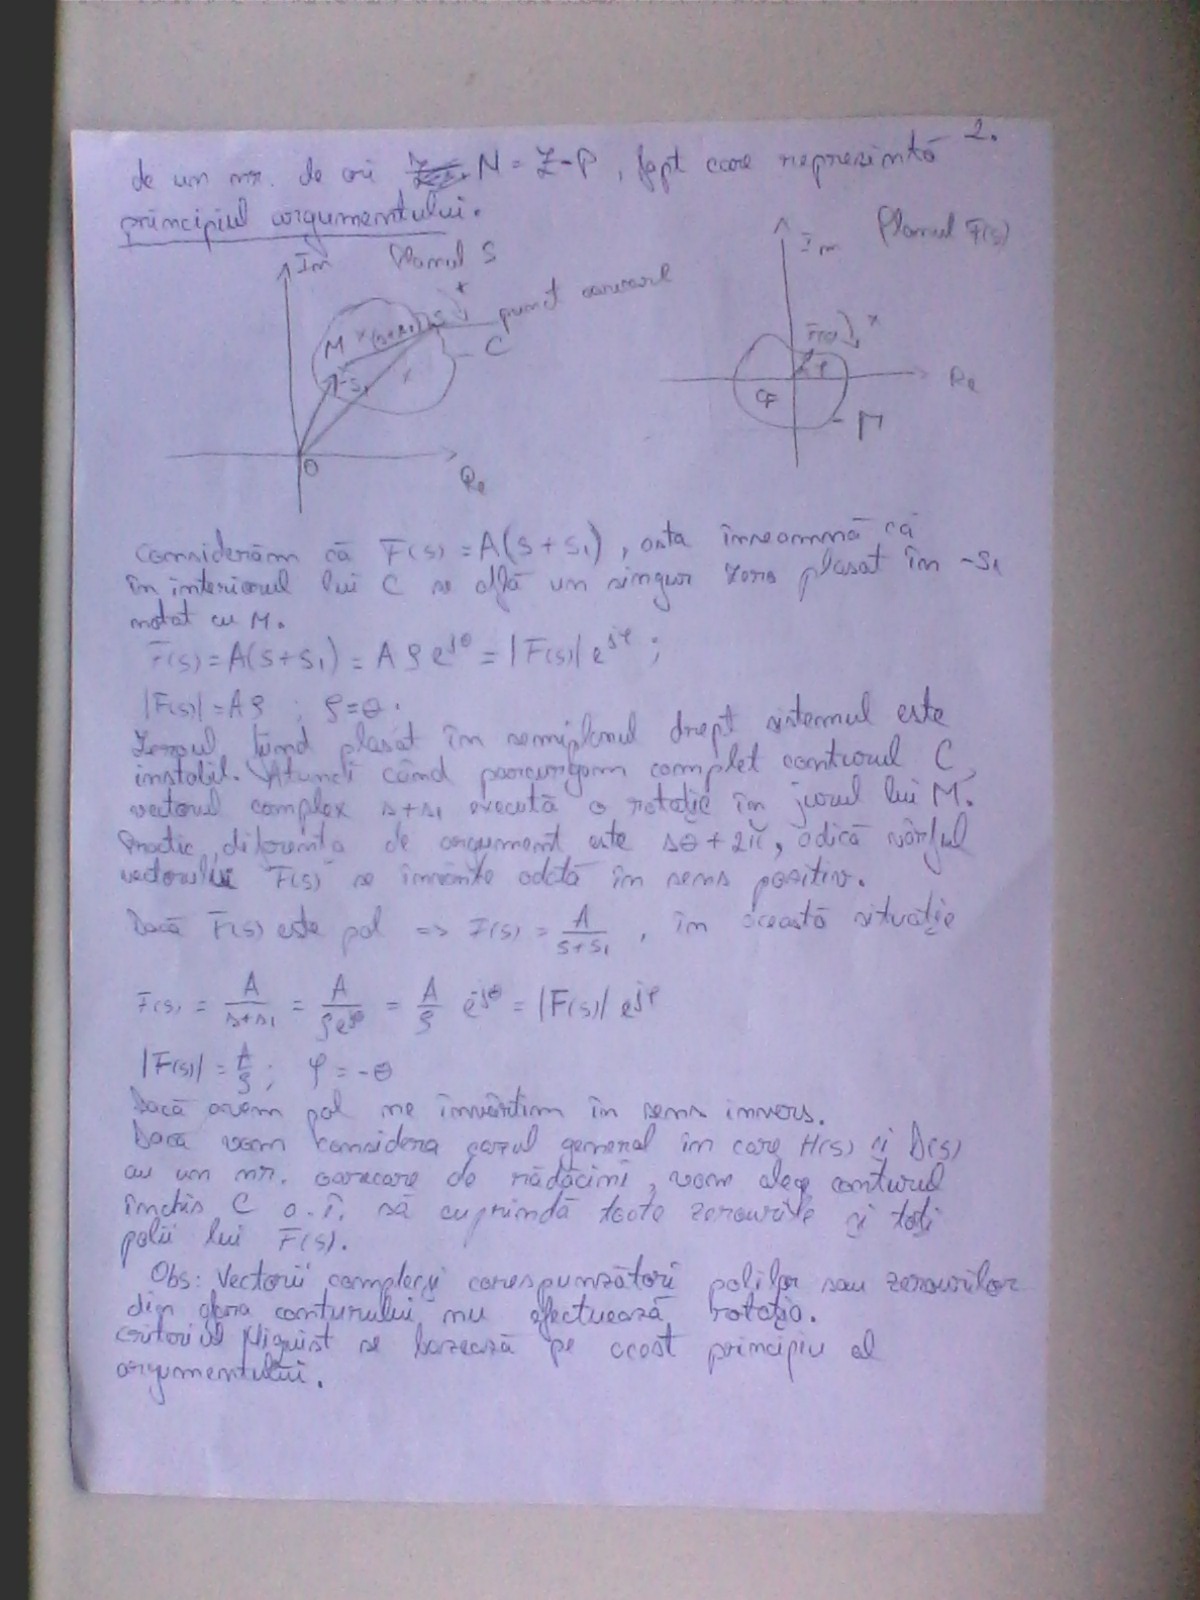 2.
de un nr. de ori N = Z - P, fapt care reprezintă
principiul argumentului.
Im Planul S
+
punct oarecare
M (s+s₁) S
C
-s₁
0
Re
Planul F(s)
Im
F(s) +
φ
Re
CF
Γ
Considerăm că F(s) = A(s+s₁), asta înseamnă că
în interiorul lui C se află un singur zero plasat în -s₁
notat cu M.
F(s) = A(s+s₁) = A ρ e^jθ = |F(s)| e^jφ ;
|F(s)| = Aρ ; φ = θ .
Zeroul, fiind plasat în semiplanul drept sistemul este
instabil. Atunci când parcurgem complet conturul C,
vectorul complex s+s₁ execută o rotație în jurul lui M.
Practic, diferența de argument este Δθ + 2π, adică vârful
vectorului F(s) se învârte odată în sens pozitiv.
Dacă F(s) este pol => F(s) = A/(s+s₁) , în această situație
F(s) = A/(s+s₁) = A/(ρe^jθ) = A/ρ e^-jθ = |F(s)| e^jφ
|F(s)| = A/ρ ; φ = -θ
Dacă avem pol ne învârtim în sens invers.
Dacă vom considera cazul general în care H(s) și D(s)
au un nr. oarecare de rădăcini, vom alege conturul
închis C a.î. să cuprindă toate zerourile și toți
polii lui F(s).
Obs: Vectorii complecși corespunzători polilor sau zerourilor
din afara conturului nu efectuează rotația.
Criteriul Niquist se bazează pe acest principiu al
argumentului.